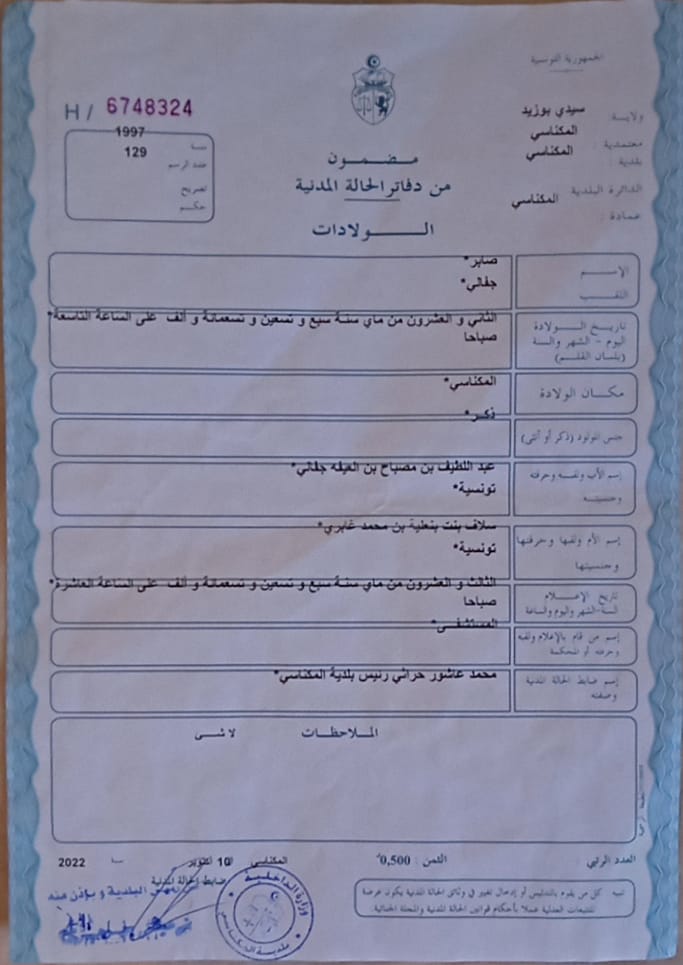 الجمهورية التونسية
H / 6748324
ولاية : سيدي بوزيد
معتمدية : المكناسي
بلدية : المكناسي
الدائرة البلدية المكناسي
عمادة :
سنة 1997
عدد الرسم 129
تصريح
حكم
مضمون
من دفاتر الحالة المدنية
الولادات
الإسم صابر*
اللقب جفالي*
تاريخ الولادة
اليوم - الشهر والسنة
(بلسان القلم)
الثاني و العشرون من ماي سنة سبع و تسعين و تسعمائة و ألف على الساعة التاسعة*
صباحا
مكان الولادة المكناسي*
جنس المولود (ذكر أو أنثى) ذكر*
إسم الأب ولقبه وحرفته
وجنسيته
عبد اللطيف بن مصباح بن العيفه جفالي*
تونسية*
إسم الأم ولقبها وحرفتها
وجنسيتها
سلاف بنت بنعلية بن محمد غابري*
تونسية*
تاريخ الإعلام
السنة-الشهر واليوم والساعة
الثالث و العشرون من ماي سنة سبع و تسعين و تسعمائة و ألف على الساعة العاشرة*
صباحا
إسم من قام بالإعلام ولقبه
وحرفته أو المحكمة
المستشفى*
إسم ضابط الحالة المدنية
وصفته
محمد عاشور حراثي رئيس بلدية المكناسي*
الملاحظات لا شى
العدد الرتبي الثمن : 0,500د
المكناسي 10 أكتوبر 2022
ضابط الحالة المدنية
البلدية و بإذن منه
وزارة الداخلية
بلدية المكناسي
تنبيه كل من يقوم بالتدليس أو إدخال تغيير في وثائق الحالة المدنية يكون عرضة
للتتبعات العدلية عملا بأحكام قوانين الحالة المدنية والمجلة الجنائية.